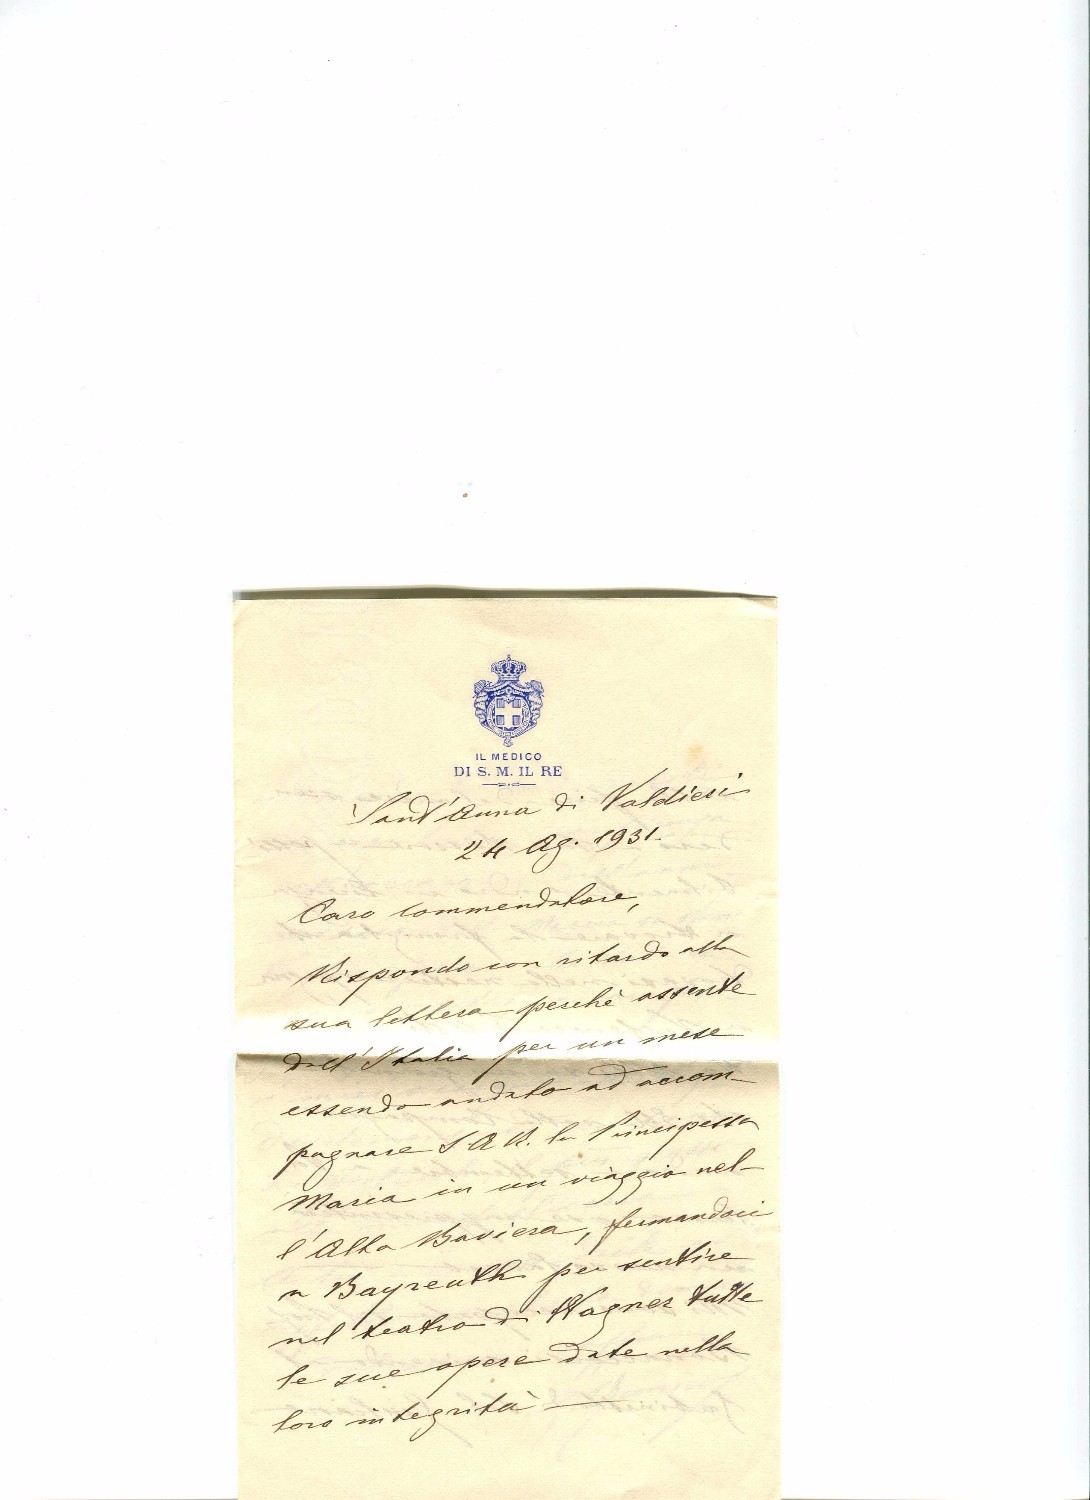 IL MEDICO
DI S. M. IL RE
Sant'Anna di Valdieri
24 Ag. 1931.
Caro commendatore,
Rispondo con ritardo alla
sua lettera perchè assente
dall'Italia per un mese
essendo andato ad accom-
pagnare S A R. la Principessa
Maria in un viaggio nel-
l'Alta Baviera, fermandoci
a Bayreuth per sentire
nel teatro di Wagner tutte
le sue opere date nella
loro integrità —